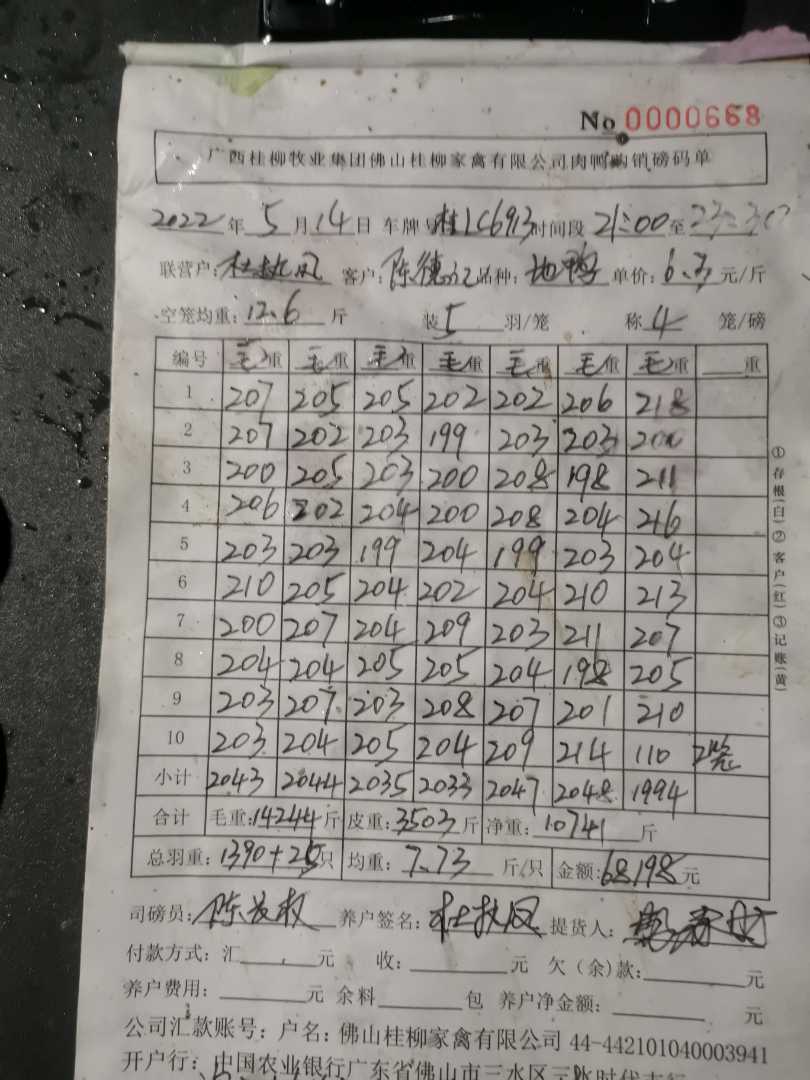 No 0000668
广西桂柳牧业集团佛山桂柳家禽有限公司肉鸭购销磅码单
2022年5月14日 车牌号桂LC6913时间段21:00至23:30
联营户:杜执风 客户:陈德 品种:地鸭 单价:6.3元/斤
空笼均重:12.6斤 装5羽/笼 称4笼/磅
编号 毛重 毛重 毛重 毛重 毛重 毛重 毛重 重
1 207 205 205 202 202 206 218
2 207 202 203 199 203 203
3 200 205 203 200 208 198 211
4 206 202 204 200 208 204 216
5 203 203 199 204 199 203 204
6 210 205 204 202 204 210 213
7 200 207 204 209 203 211 207
8 204 204 205 205 204 198 205
9 203 207 203 208 207 201 210
10 203 204 205 204 209 214 110 2笼
小计 2043 2044 2035 2033 2047 2048 1994
合计 毛重:14244斤 皮重:3503斤 净重:10741斤
总羽重:1390+25只 均重:7.73斤/只 金额:68198元
司磅员:陈发权 养户签名:杜执风 提货人:
付款方式:汇 元 收: 元 欠(余)款: 元
养户费用: 元 余料 包 养户净金额: 元
公司汇款账号:户名:佛山桂柳家禽有限公司 44-442101040003941
开户行:中国农业银行广东省佛山市三水区三水时代支行
①存根(白)②客户(红)③记账(黄)